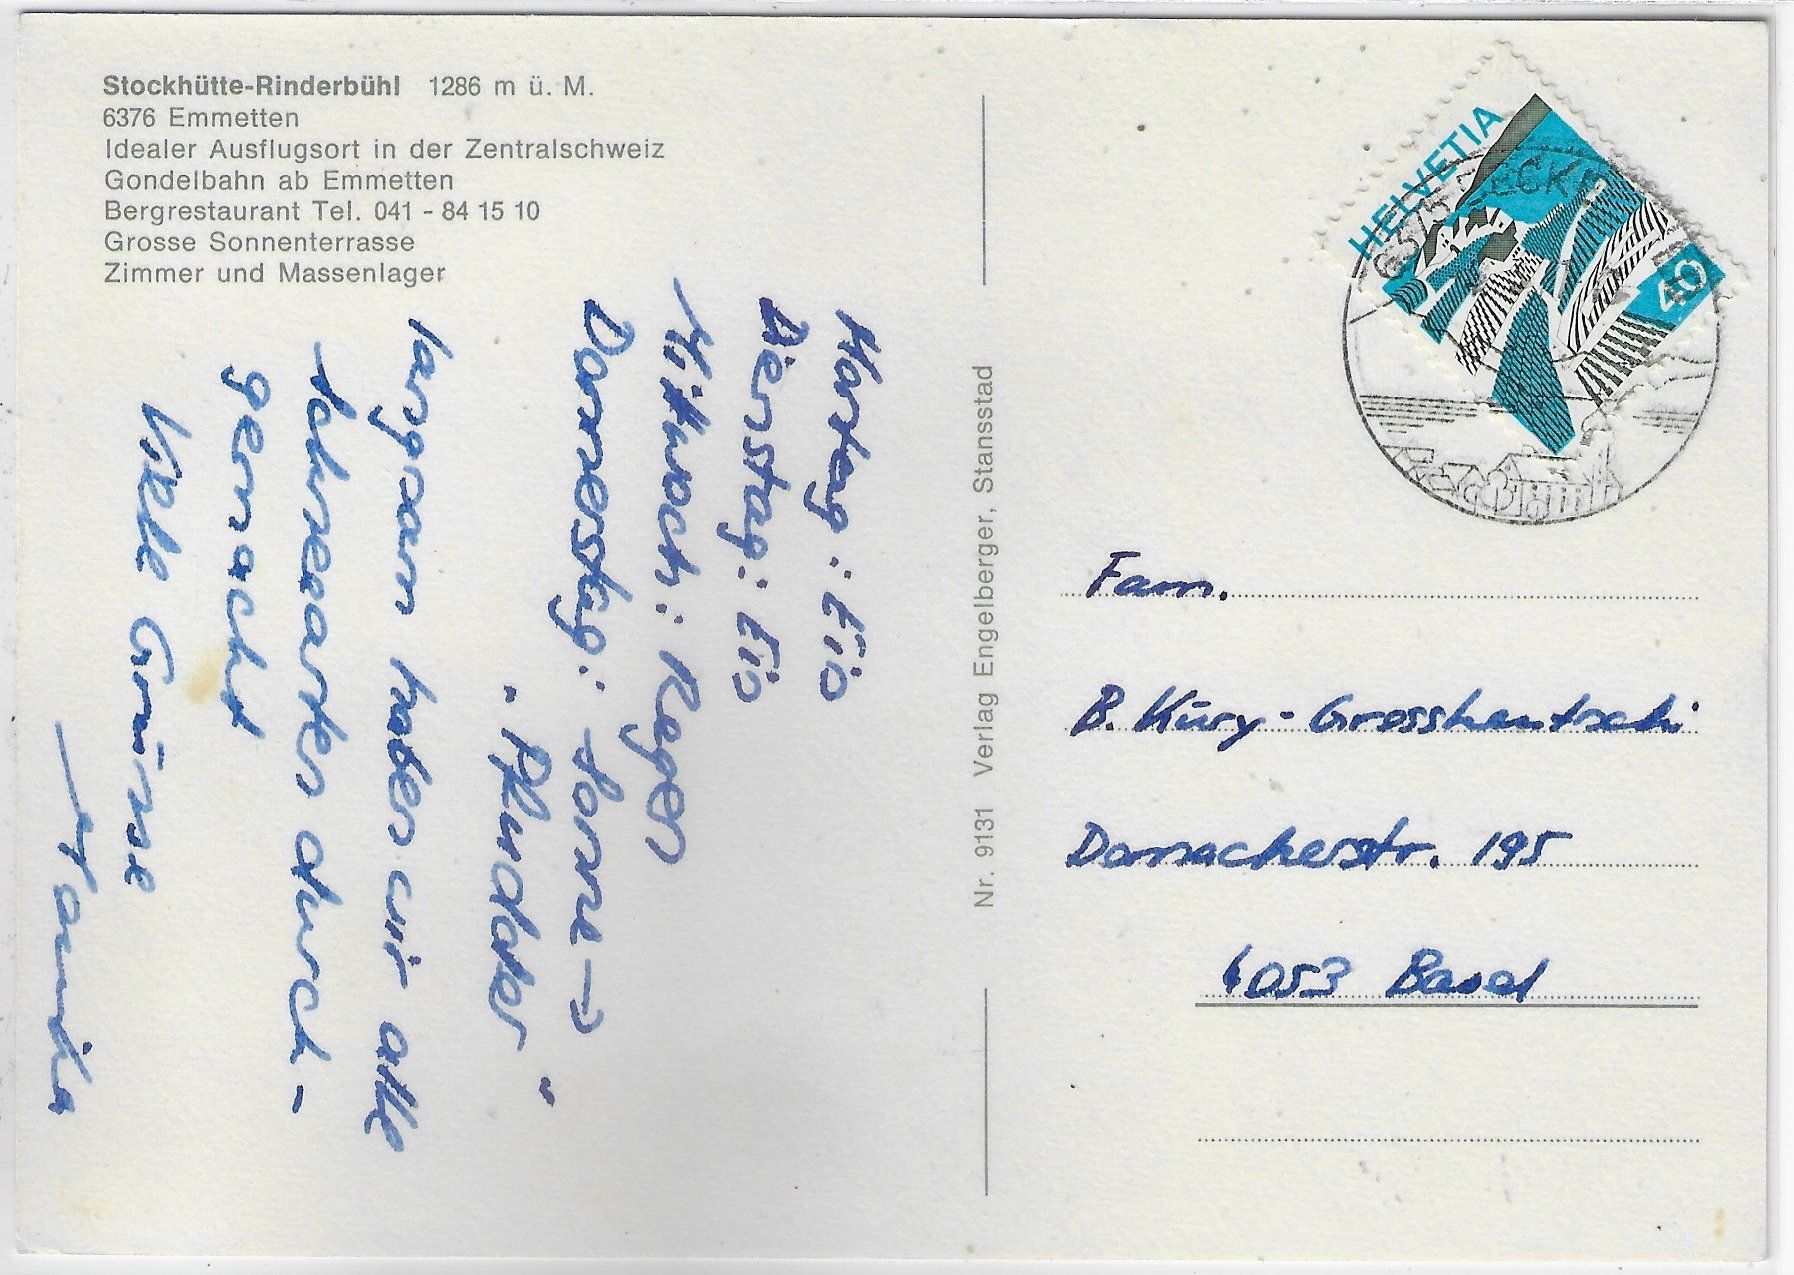 Stockhütte-Rinderbühl 1286 m ü. M.
6376 Emmetten
Idealer Ausflugsort in der Zentralschweiz
Gondelbahn ab Emmetten
Bergrestaurant Tel. 041 - 84 15 10
Grosse Sonnenterrasse
Zimmer und Massenlager
Montag: Eis
Dienstag: Eis
Mittwoch: Regen
Donnerstag: Sonne →
"Pfludder"
langsam haben wir alle
Jahreszeiten durch-
gemacht
Viele Grüsse
Nr. 9131 Verlag Engelberger, Stansstad
HELVETIA
40
6375
Fam.
B. Kury-Grosshentschi
Dornacherstr. 195
4053 Basel